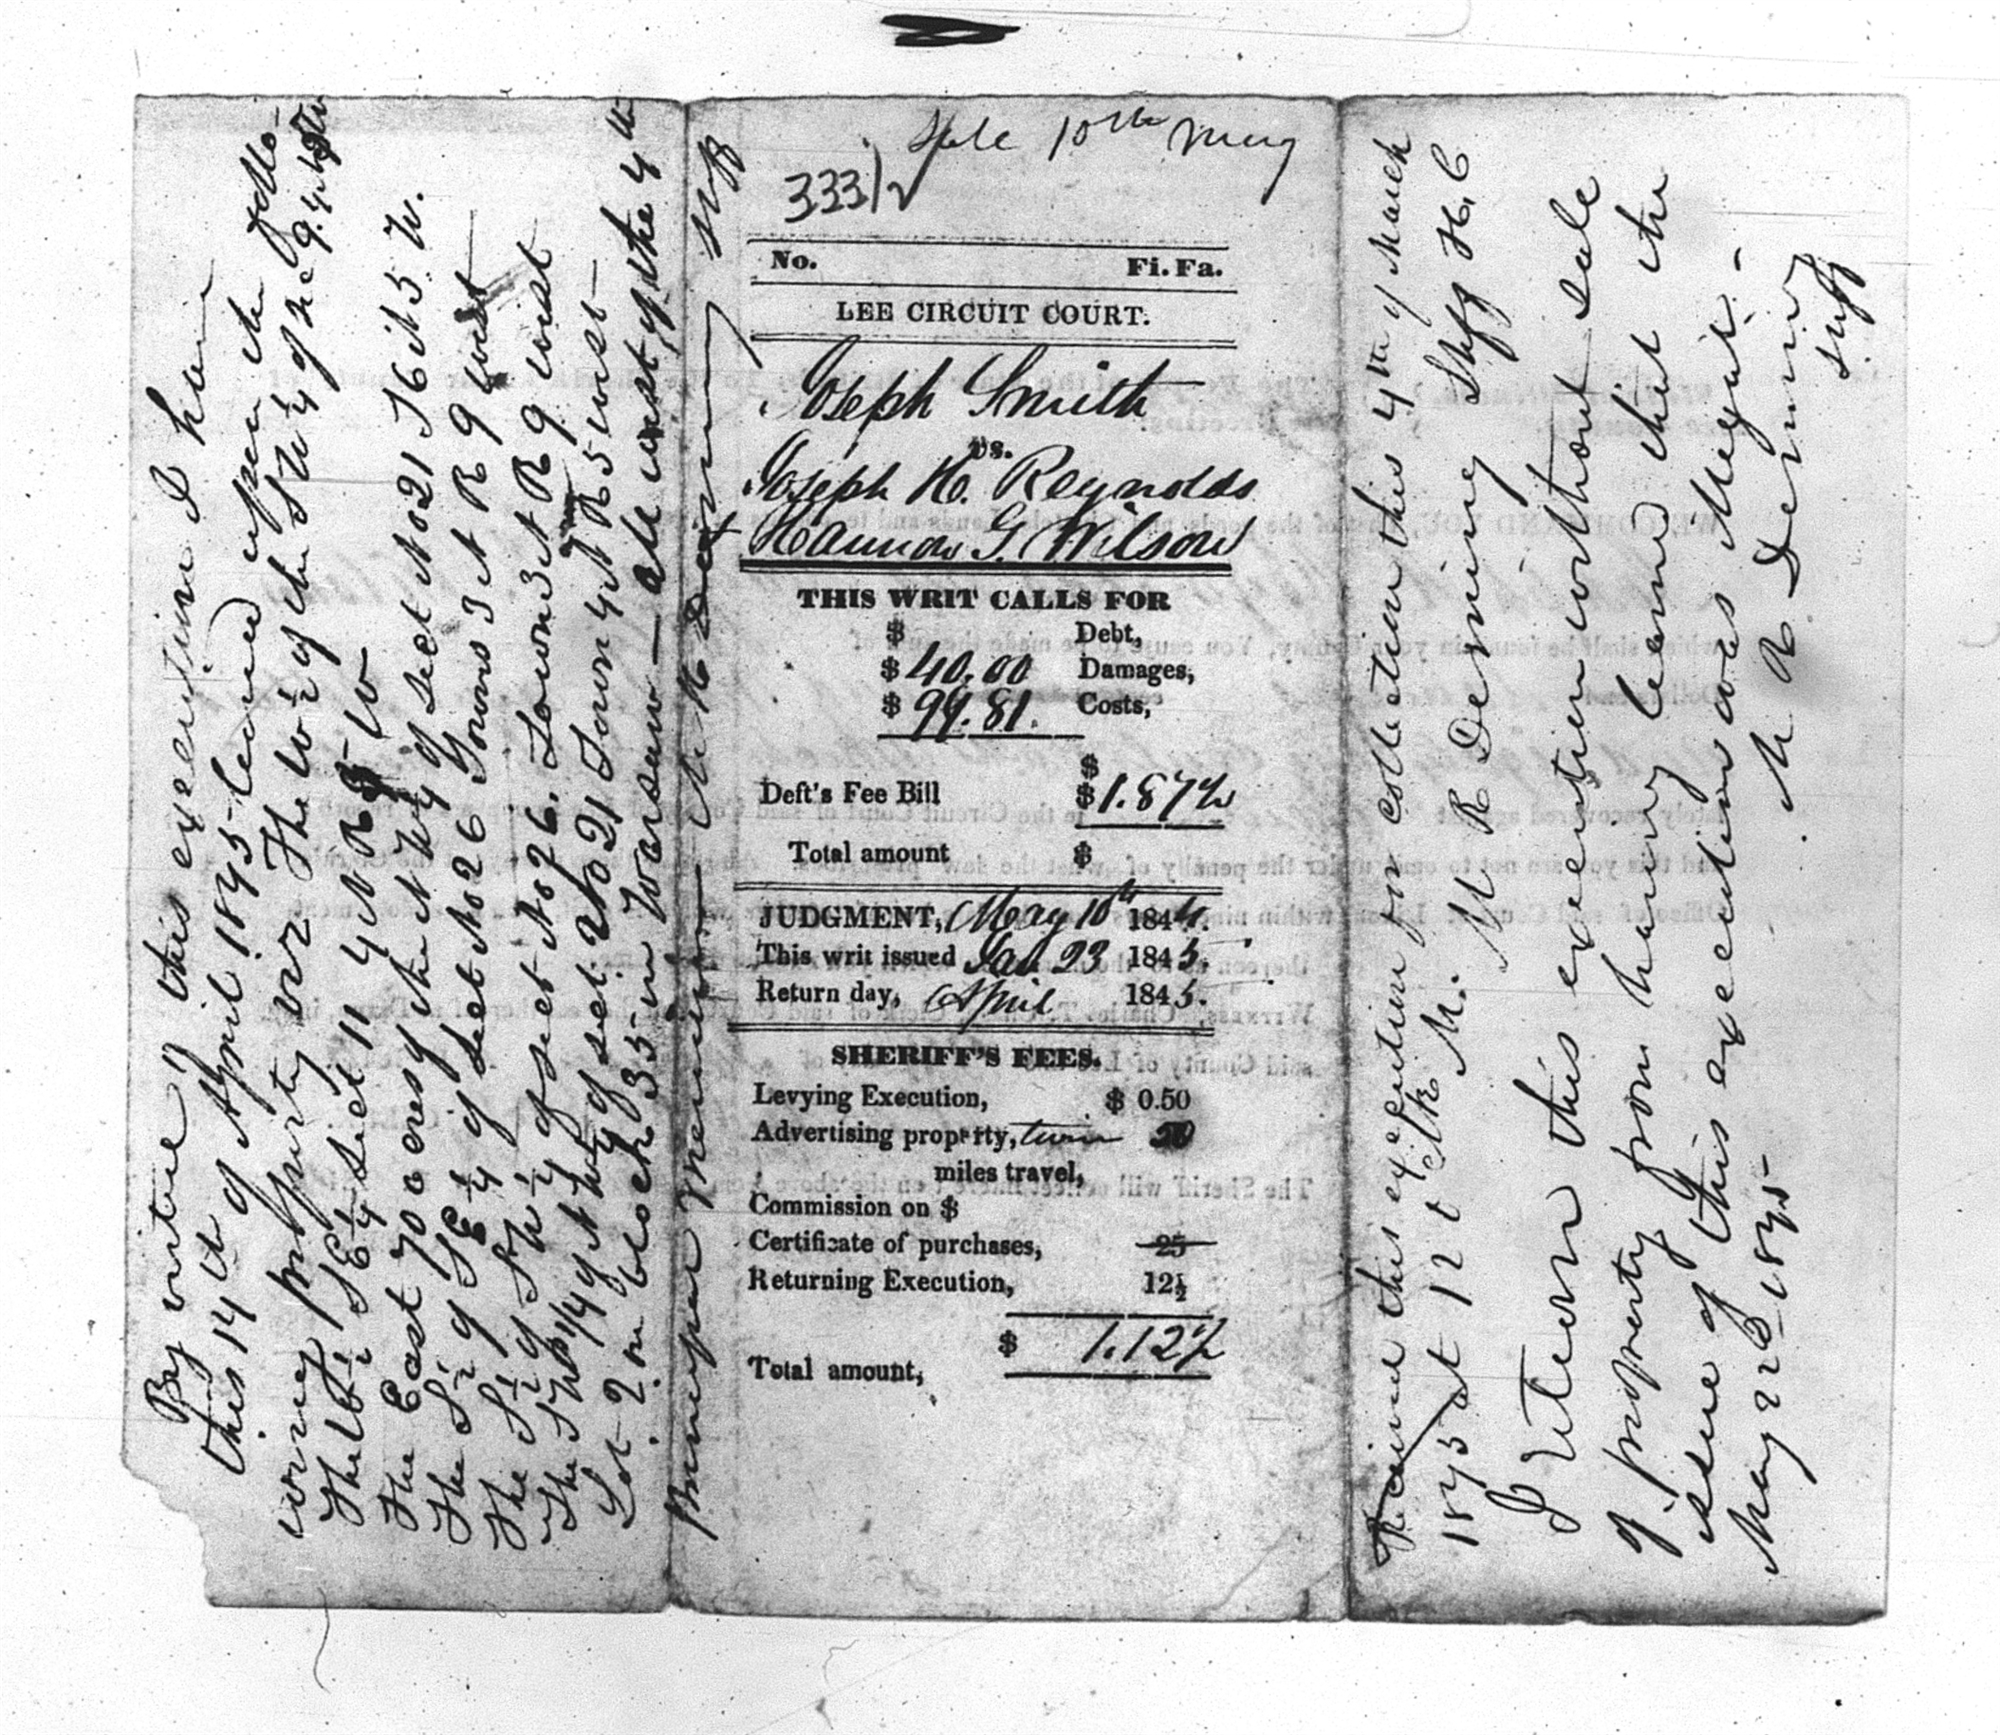 By virtue of this execution I have
this 14th of April 1845 levied upon the follo-
wing property viz The W ½ of the SW ¼ of Sec 9. 4
The W ½ SE ¼ Sect 11 4 N R 5 W
The East 70 acres of the N W ¼ of Sect No 21 T 6 N 5 W.
The S ½ of SE ¼ of Sect No 26 Towns 3 N R 9 West
The S ½ of SW ¼ of Sect No 26. Town 3 N R 9 West
The SW ¼ of NW ¼ of Sect. No 21 Town 4 N R 5 West
Lot 2 on block 35 in Warsaw— all west of the 4th
principal Meridian M R Deming
Sale 10th May
333 1/2
No. Fi. Fa.
LEE CIRCUIT COURT.
Joseph Smith
vs.
Joseph H. Reynolds
& Harmon G. Wilson
THIS WRIT CALLS FOR
$ Debt,
$ 40.00 Damages,
$ 99.81. Costs,
$
Deft's Fee Bill $1.87½
Total amount $
JUDGMENT, May 10th 1844.
This writ issued Jan 23 1845.
Return day, April 1845.
SHERIFF'S FEES.
Levying Execution, $ 0.50
Advertising property, twice 50
miles travel,
Commission on $
Certificate of purchases, 25
Returning Execution, 12½
$ 1.12½
Total amount,
Received this execution for collection this 4th of March
1845 at 12 oclk M. M R Deming Shff H. C
I return this execution without sale
of property from having learned that the
issue of this execution was illegal.-
May 22d 1845 M R Deming
Shff